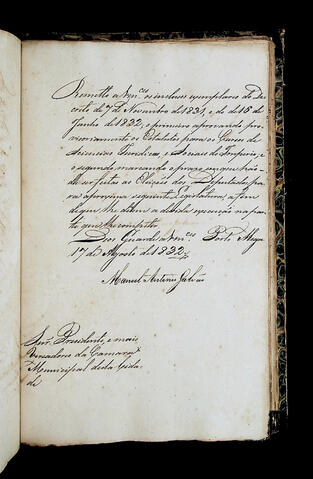 Remetto a Vm.ces os inclusos exemplares do De
creto de 7 de Novembro de 1831, e de 15 de
Junho de 1832, o primeiro aprovando pro
visoriamente os Estatutos para os Cursos de
Sciencias Juridicas, e Sociaes do Imperio, e
o segundo, marcando o prazo em que hão
de ser feitas as Eleições dos Deputados pa
ra a proxima seguinte Legislatura, a fim
de que lhe dêem a devida execução na par
te que lhe competir.
Deos Guarde a Vm.ces Porto Alegre
17 de Agosto de 1832
Manoel Antonio Galvão
Snr. Presidente, e mais
Vereadores da Camara
Municipal desta Cida
de